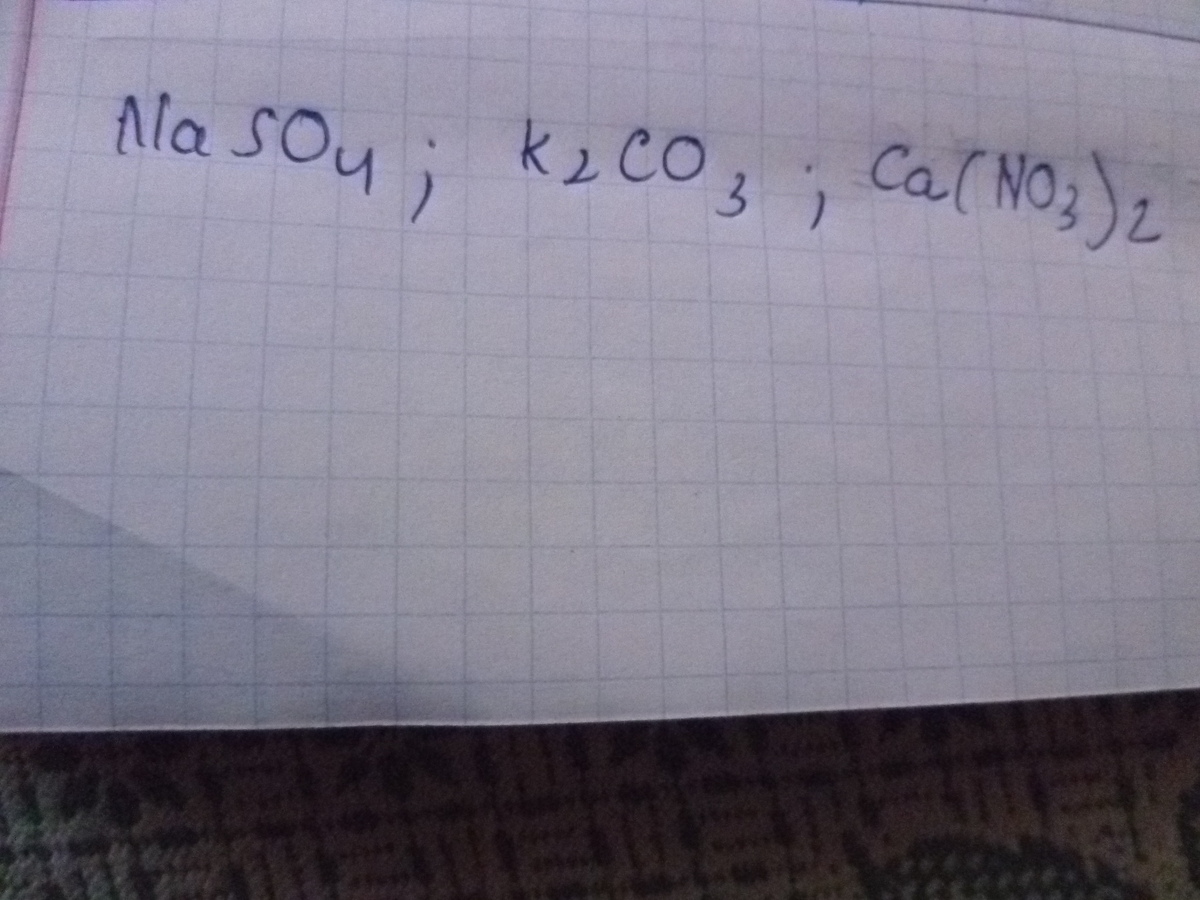 NaSO4; K2CO3; Ca(NO3)2